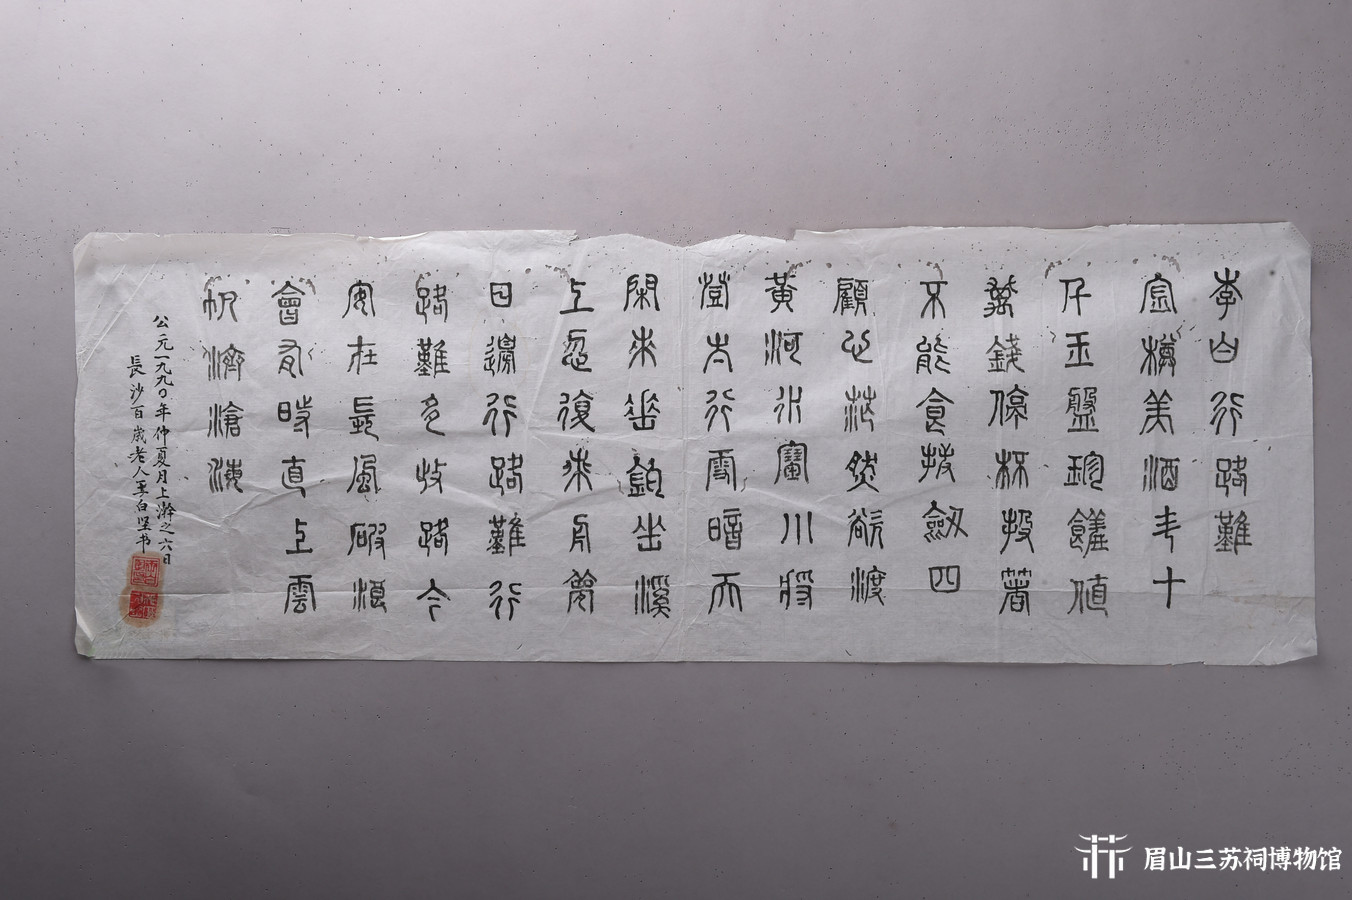 李白行路難
金樽美酒斗十
仟玉盤珍饈値
萬錢停杯投箸
不能食拔劍四
顧心茫然欲渡
黃河冰塞川將
登太行雪暗天
閑來垂釣坐溪
上忽復乘舟夢
日邊行路難行
路難多歧路今
安在長風破浪
會有時直上雲
帆濟滄海
公元一九九〇年仲夏月上澣之六日
長沙百歲老人白坚书
眉山三苏祠博物馆